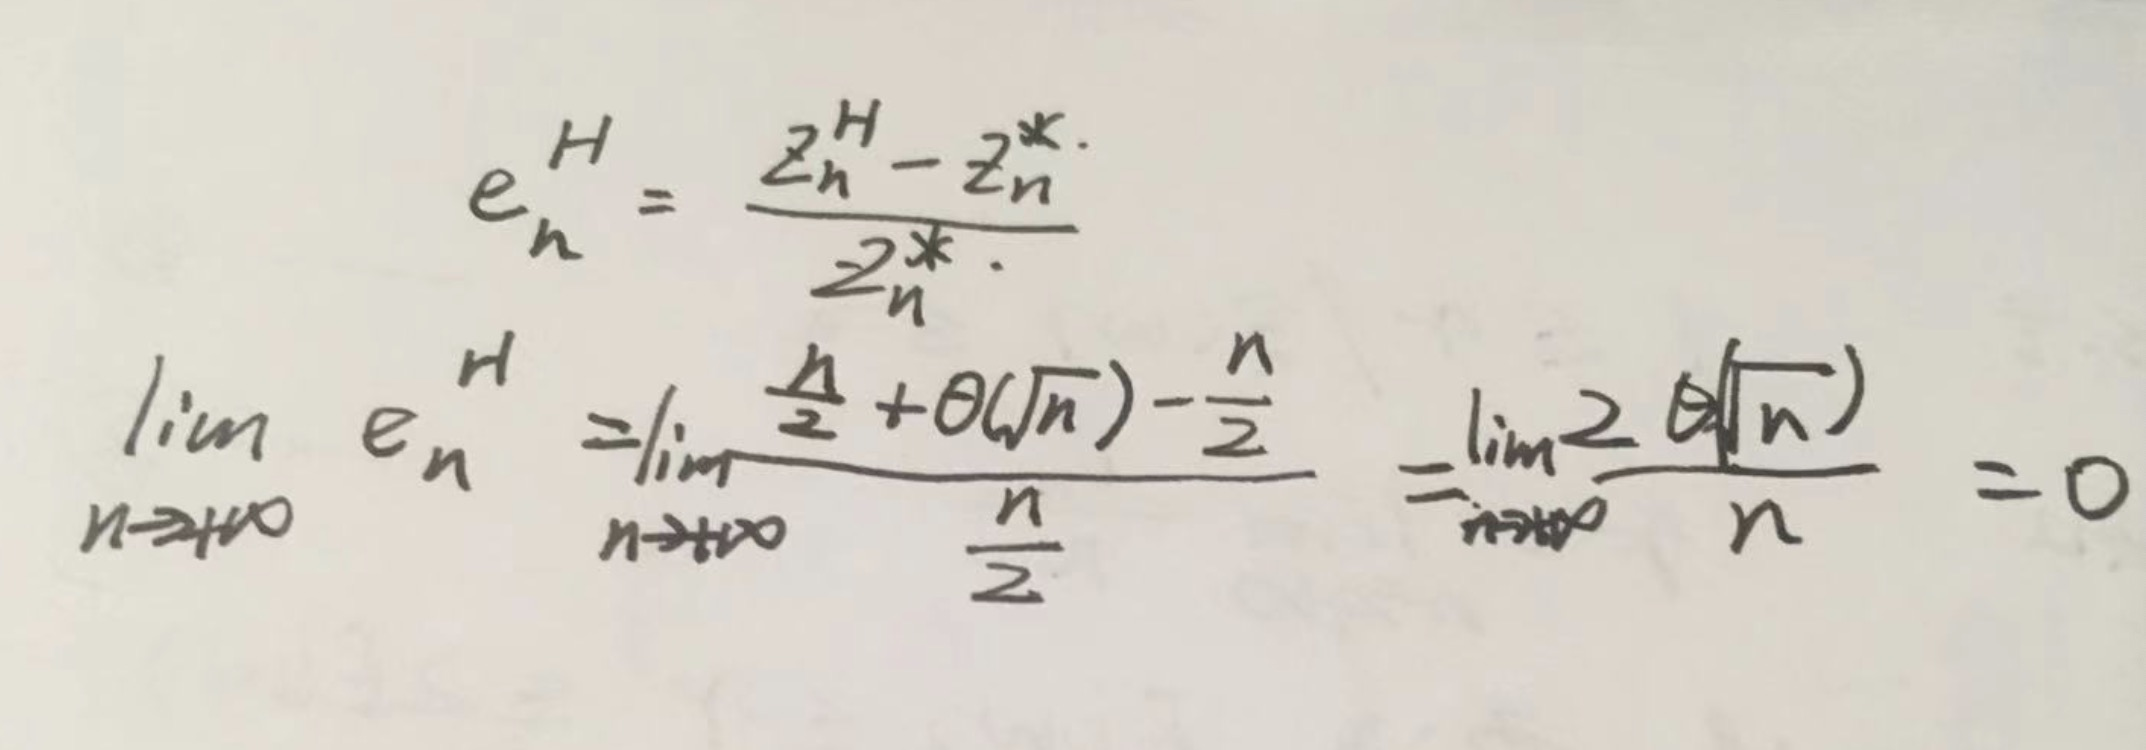 e_n^H = \frac{Z_n^H - Z_n^*.}{Z_n^*.}
\lim_{n \to +\infty} e_n^H = \lim_{n \to +\infty} \frac{\frac{n}{2} + \theta(\sqrt{n}) - \frac{n}{2}}{\frac{n}{2}} = \lim_{n \to +\infty} \frac{2 \theta(\sqrt{n})}{n} = 0